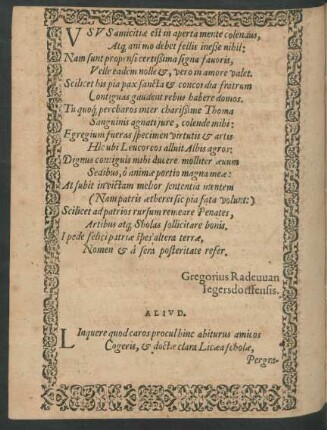 VSVS amicitiæ est in aperta mente colendus,
Atq; animo debet fellis inesse nihil:
Nam sunt propensi certissima signa fauoris,
Velle eadem nolle &, vero in amore valet.
Scilicet his pia pax sancta & concordia fratrum
Contiguas gaudent rebus habere domos.
Tu quoq; per charos inter charissime Thoma
Sanguinis agnati jure, colende mihi:
Egregium fueras specimen virtutis & artis
Hîc ubi Leucoreos alluit Albis agros:
Dignus contiguis mihi ducere molliter æuum
Sedibus, ô animæ portio magna meæ:
At subit invictam melior sententia mentem
(Nam patris ætherei sic pia fata volunt:)
Scilicet ad patrios rursum remeare Penates,
Artibus atq; Sholas sollicitare bonis.
I pede felici patriæ spes altera terræ,
Nomen & à sera posteritate refer.
Gregorius Radeuuan
Iegersdorffensis.
ALIVD.
LInquere quod caros procul hinc abiturus amicos
Cogeris, & doctæ clara Licæa scholæ,
Pergra-